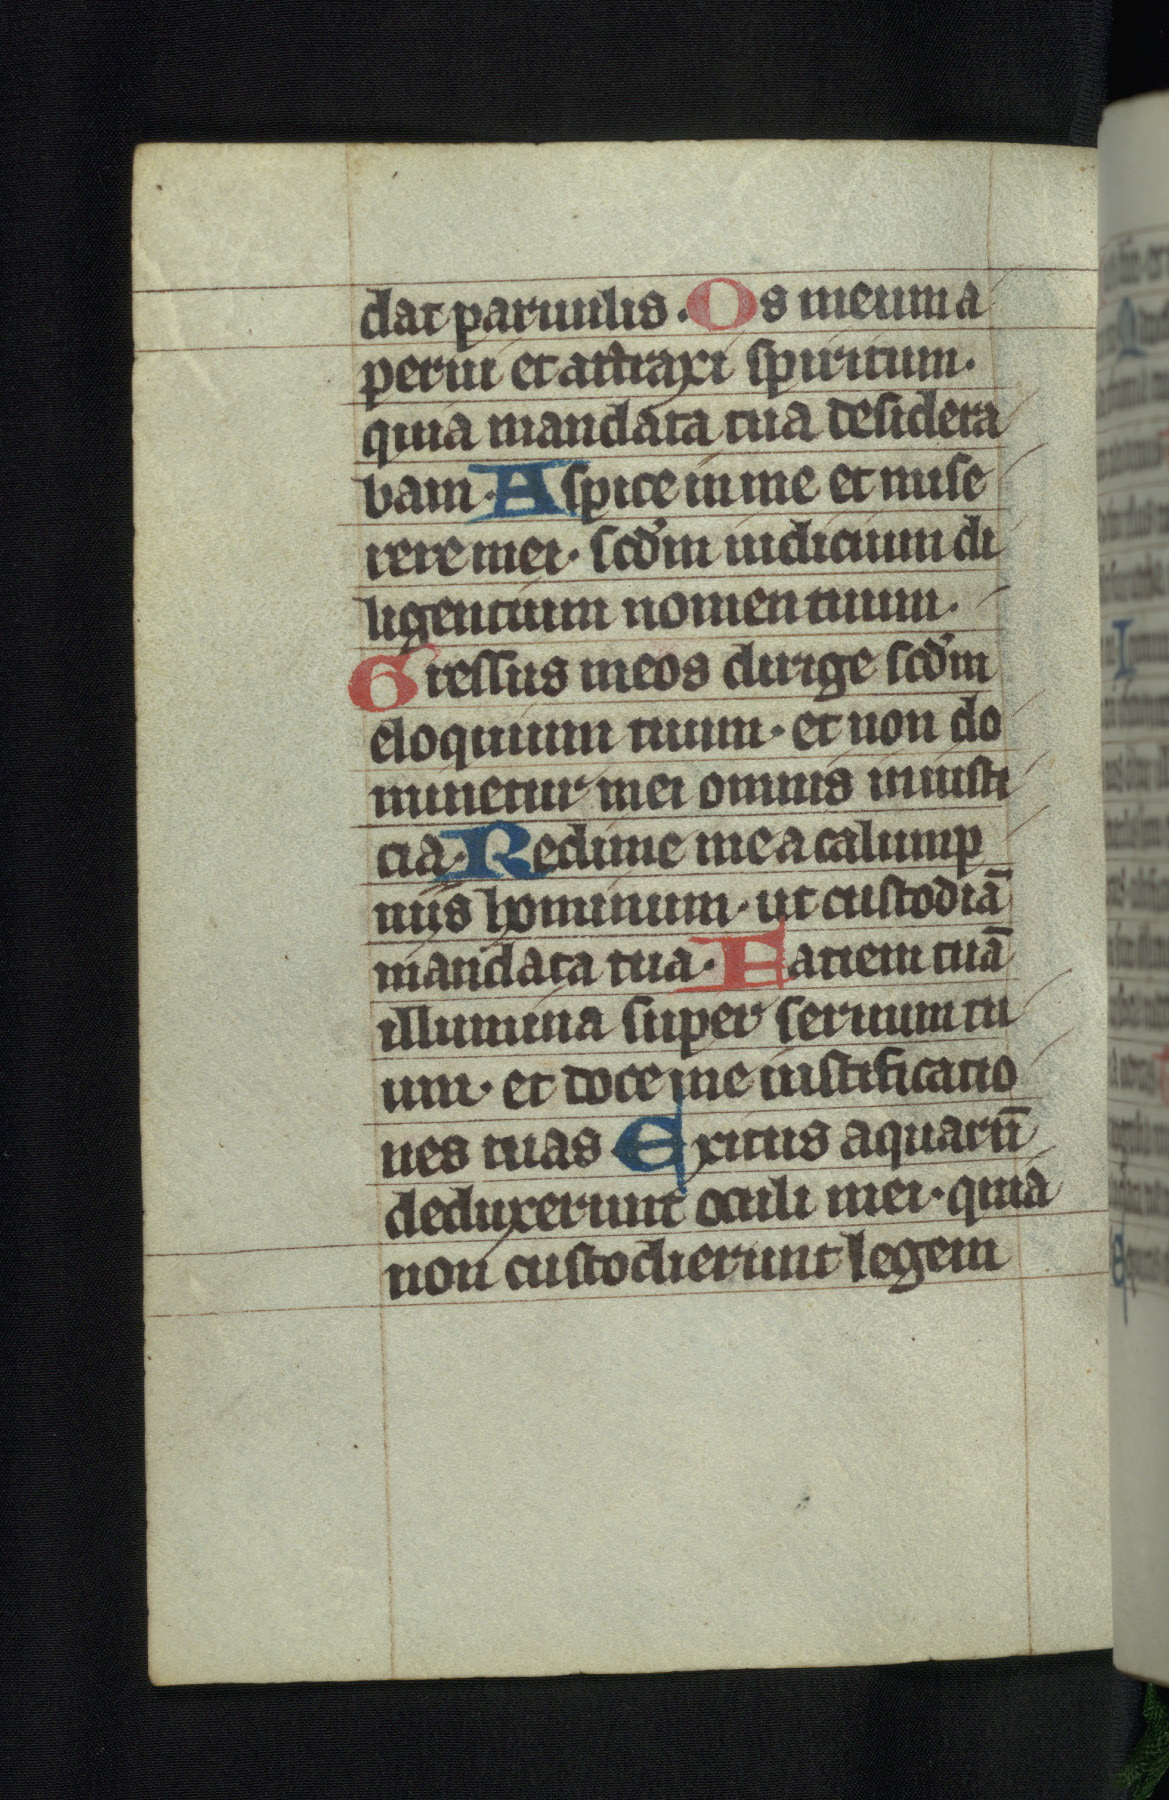 dat paruulis. Os meum a
perui et attraxi spiritum.
quia mandata tua desidera
bam. Aspice in me et mise
rere mei. scd'm iudicium di
ligentium nomen tuum.
Gressus meos dirige scd'm
eloquium tuum. et non do
minetur mei omnis iniusti
cia. Redime me a calump
niis hominum. ut custodiā
mandata tua. Faciem tuā
illumina super seruum tu
um. et doce me iustificatio
nes tuas Exitus aquarū
deduxerunt oculi mei. quia
non custodierunt legem